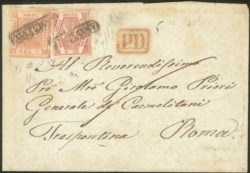 PD
Al Reverendissimo
Pre Mro Girolamo Priori
Generale de Carmelitani
Traspontina Roma